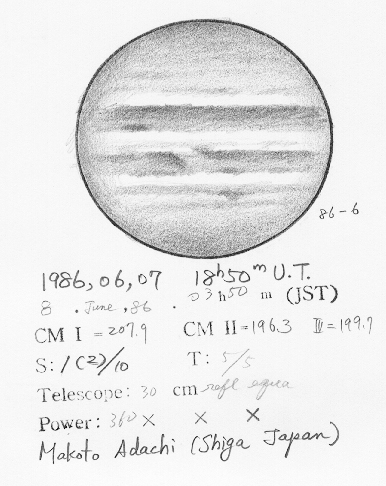 86-6
1986, 06, 07 18h50m U.T.
8 . June , 86 . 03h50 m (JST)
CM I = 207.9 CM II = 196.3 III = 199.7
S: 1 (2)/10 T: 5/5
Telescope: 30 cm refl equa
Power: 360 × × ×
Makoto Adachi (Shiga Japan)